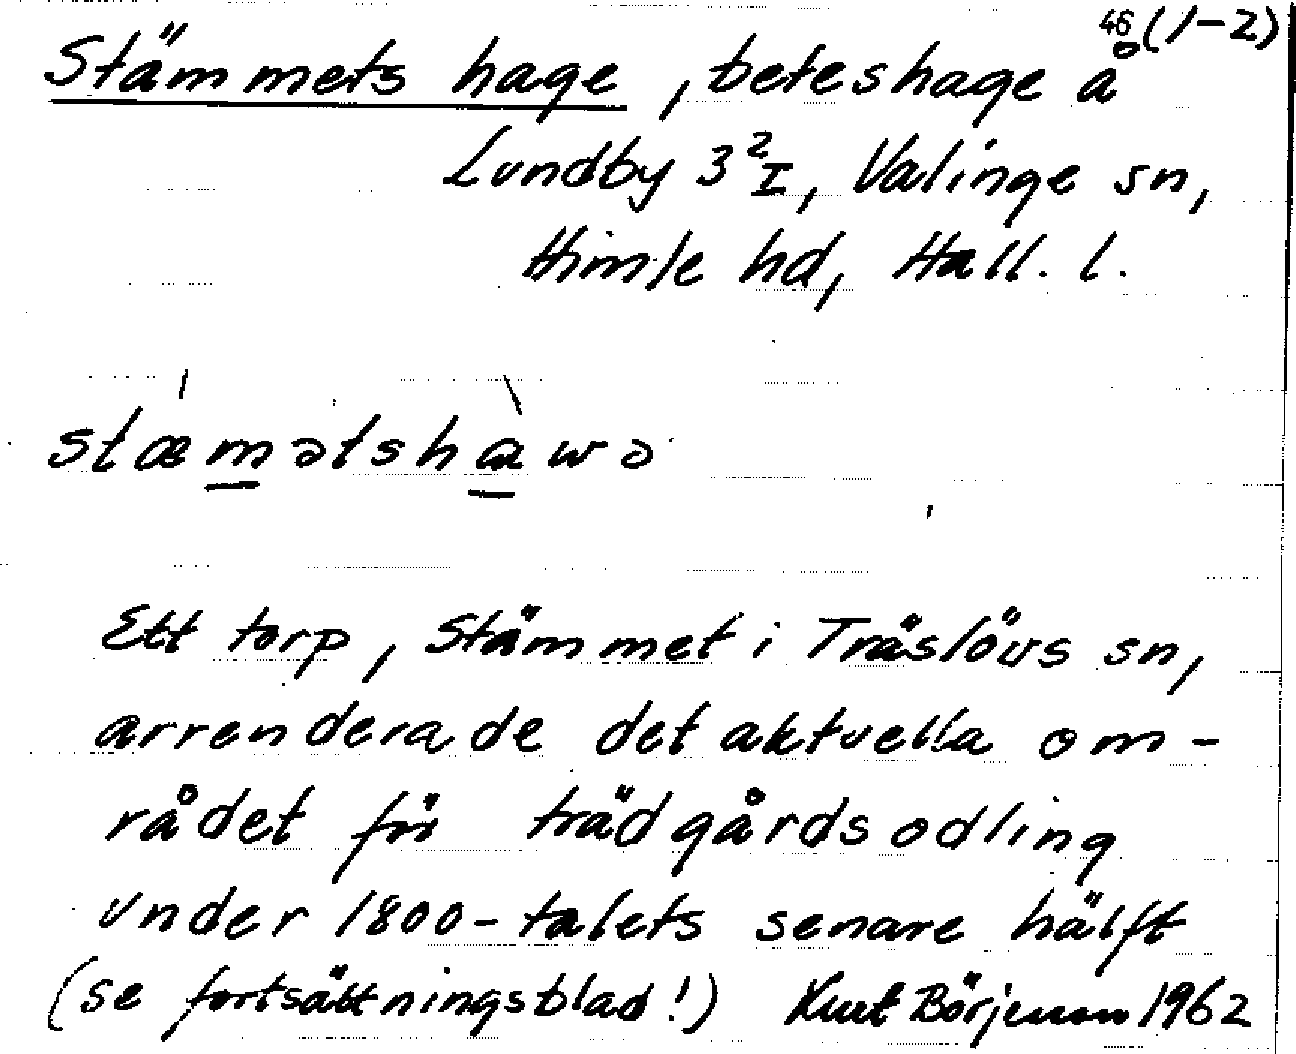 46 (1-2)
Stämmets hage, beteshage å
Lundby 3²I, Valinge sn,
Himle hd, Hall. l.
stæmətshawə
Ett torp, Stämmet i Träslövs sn,
arrenderade det aktuella om-
rådet för trädgårdsodling
under 1800-talets senare hälft
(se fortsättningsblad!) Kurt Börjesson 1962